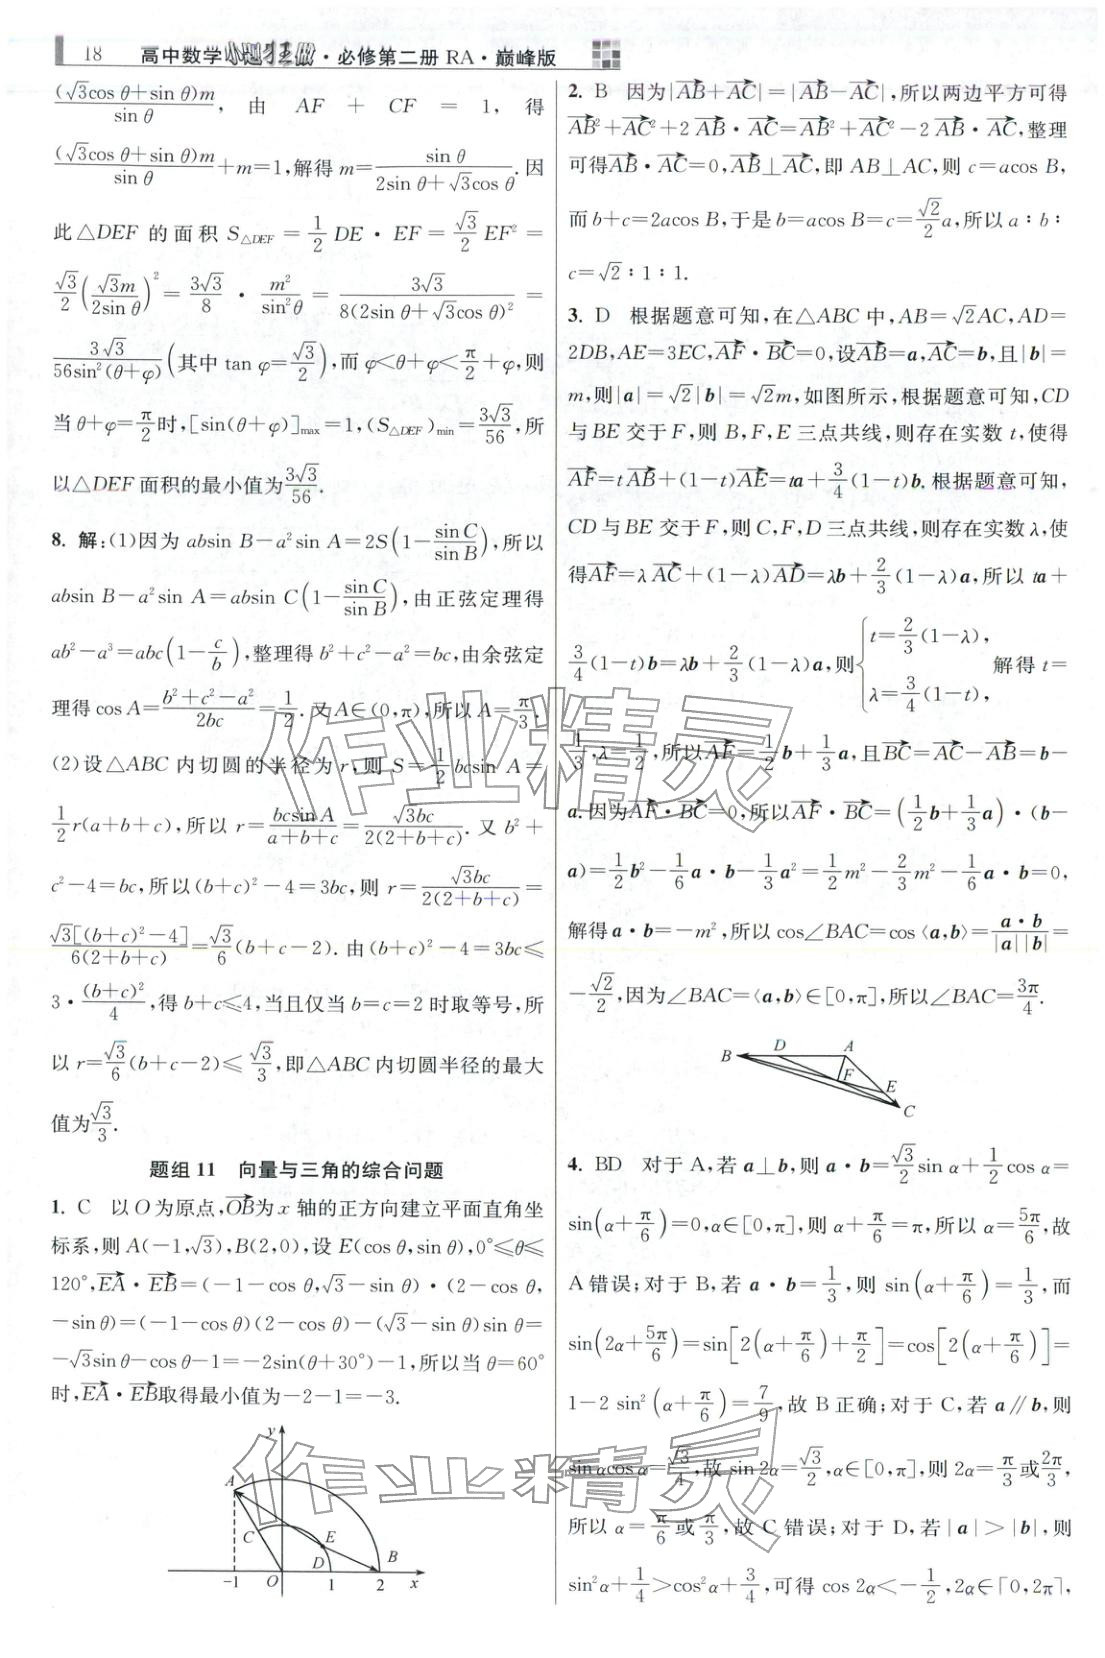 18 高中数学小题狂做·必修第二册 RA·巅峰版
(√3cos θ+sin θ)m/sin θ, 由 AF + CF = 1, 得
(√3cos θ+sin θ)m/sin θ+m=1,解得 m=sin θ/(2sin θ+√3cos θ).因
此△DEF 的面积 S△DEF = 1/2 DE·EF = √3/2 EF² =
√3/2(√3m/2sin θ)² = 3√3/8 · m²/sin²θ = 3√3/8(2sin θ+√3cos θ)² =
3√3/56sin²(θ+φ)(其中 tan φ=√3/2),而 φ<θ+φ<π/2+φ,则
当 θ+φ=π/2时,[sin(θ+φ)]max=1,(S△DEF)min=3√3/56,所
以△DEF 面积的最小值为3√3/56.
8. 解:(1)因为 absin B-a²sin A=2S(1-sin C/sin B),所以
absin B-a²sin A=absin C(1-sin C/sin B),由正弦定理得
ab²-a³=abc(1-c/b),整理得 b²+c²-a²=bc,由余弦定
理得 cos A=(b²+c²-a²)/2bc=1/2.又 A∈(0,π),所以 A=π/3.
(2)设△ABC 内切圆的半径为 r,则 S=1/2bcsin A=
1/2r(a+b+c),所以 r=bcsin A/(a+b+c)=√3bc/2(2+b+c).又 b²+
c²-4=bc,所以(b+c)²-4=3bc,则 r=√3bc/2(2+b+c)=
√3[(b+c)²-4]/6(2+b+c)=√3/6(b+c-2).由(b+c)²-4=3bc≤
3·(b+c)²/4,得 b+c≤4,当且仅当 b=c=2 时取等号,所
以 r=√3/6(b+c-2)≤√3/3,即△ABC 内切圆半径的最大
值为√3/3.
题组 11 向量与三角的综合问题
1. C 以 O 为原点,OB为 x 轴的正方向建立平面直角坐
标系,则 A(-1,√3),B(2,0),设 E(cos θ,sin θ),0°≤θ≤
120°,EA·EB=(-1-cos θ,√3-sin θ)·(2-cos θ,
-sin θ)=(-1-cos θ)(2-cos θ)-(√3-sin θ)sin θ=
-√3sin θ-cos θ-1=-2sin(θ+30°)-1,所以当 θ=60°
时,EA·EB取得最小值为-2-1=-3.
y
A
C
E
D
B
-1 O 1 2 x
2. B 因为|AB+AC|=|AB-AC|,所以两边平方可得
AB²+AC²+2 AB·AC=AB²+AC²-2 AB·AC,整理
可得AB·AC=0,AB⊥AC,即 AB⊥AC,则 c=acos B,
而 b+c=2acos B,于是 b=acos B=c=√2/2a,所以 a∶b∶
c=√2∶1∶1.
3. D 根据题意可知,在△ABC 中,AB=√2AC,AD=
2DB,AE=3EC,AF·BC=0,设AB=a,AC=b,且|b|=
m,则|a|=√2|b|=√2m,如图所示,根据题意可知,CD
与 BE 交于 F,则 B,F,E 三点共线,则存在实数 t,使得
AF=tAB+(1-t)AE=ta+3/4(1-t)b.根据题意可知,
CD 与 BE 交于 F,则 C,F,D 三点共线,则存在实数 λ,使
得AF=λ AC+(1-λ)AD=λb+2/3(1-λ)a,所以 ta+
3/4(1-t)b=λb+2/3(1-λ)a,则{t=2/3(1-λ), λ=3/4(1-t), 解得 t=
1/3,λ=1/2,所以AF=1/2b+1/3a,且BC=AC-AB=b-
a.因为AF·BC=0,所以AF·BC=(1/2b+1/3a)·(b-
a)=1/2b²-1/6a·b-1/3a²=1/2m²-2/3m²-1/6a·b=0,
解得 a·b=-m²,所以 cos∠BAC=cos〈a,b〉=a·b/|a||b|=
-√2/2,因为∠BAC=〈a,b〉∈[0,π],所以∠BAC=3π/4.
B D A F E C
4. BD 对于 A,若 a⊥b,则 a·b=√3/2sin α+1/2cos α=
sin(α+π/6)=0,α∈[0,π],则 α+π/6=π,所以 α=5π/6,故
A 错误;对于 B,若 a·b=1/3,则 sin(α+π/6)=1/3,而
sin(2α+5π/6)=sin[2(α+π/6)+π/2]=cos[2(α+π/6)]=
1-2 sin²(α+π/6)=7/9,故 B 正确;对于 C,若 a∥b,则
sin αcos α=√3/4,故 sin 2α=√3/2,α∈[0,π],则 2α=π/3或2π/3,
所以 α=π/6或π/3,故 C 错误;对于 D,若|a|>|b|,则
sin²α+1/4>cos²α+3/4,可得 cos 2α<-1/2,2α∈[0,2π],
作业精灵
作业精灵